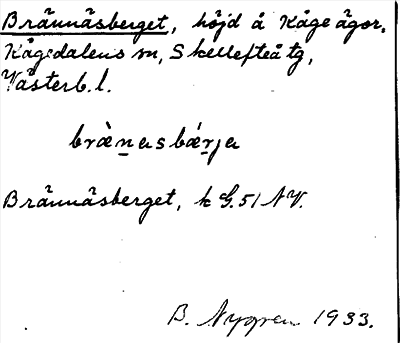 Brännäsberget, höjd å Kåge ägor,
Kågedalens sn, Skellefteå tg,
Västerb. l.
brænasbærja
Brännäsberget, k G. 51 NV.
B. Nygren 1933.